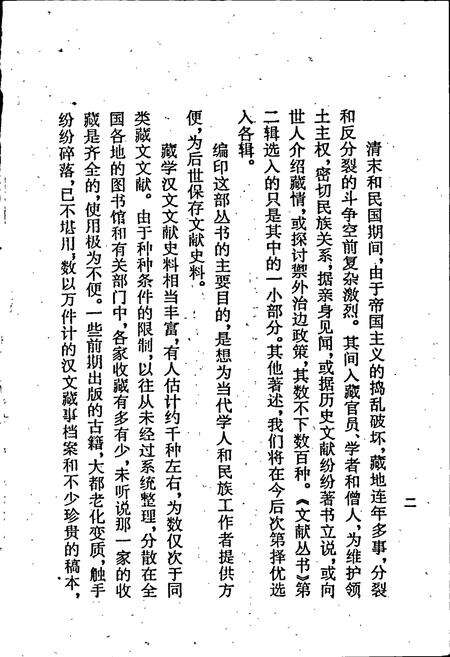 二
清末和民国期间，由于帝国主义的捣乱破坏，藏地连年多事，分裂
和反分裂的斗争空前复杂激烈。其间入藏官员、学者和僧人，为维护领
土主权，密切民族关系，据亲身见闻，或据历史文献纷纷著书立说，或向
世人介绍藏情，或探讨禦外治边政策，其数不下数百种。《文献丛书》第
二辑选入的只是其中的一小部分。其他著述，我们将在今后次第择优选
入各辑。
编印这部丛书的主要目的，是想为当代学人和民族工作者提供方
便，为后世保存文献史料。
藏学汉文文献史料相当丰富，有人估计约千种左右，为数仅次于同
类藏文文献。由于种种条件的限制，以往从未经过系统整理，分散在全
国各地的图书馆和有关部门中，各家收藏有多有少，未听说那一家的收
藏是齐全的，使用极为不便。一些前期出版的古籍，大都老化变质，触手
纷纷碎落，已不堪用，数以万件计的汉文藏事档案和不少珍贵的稿本，